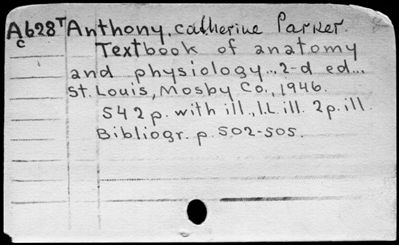 A628T Anthony, Catherine Parker.
c Textbook of anatomy
and physiology... 2-d ed...
St. Louis, Mosby Co., 1946.
542 p. with ill., 1.L ill. 2 p. ill.
Bibliogr. p. 502-505.